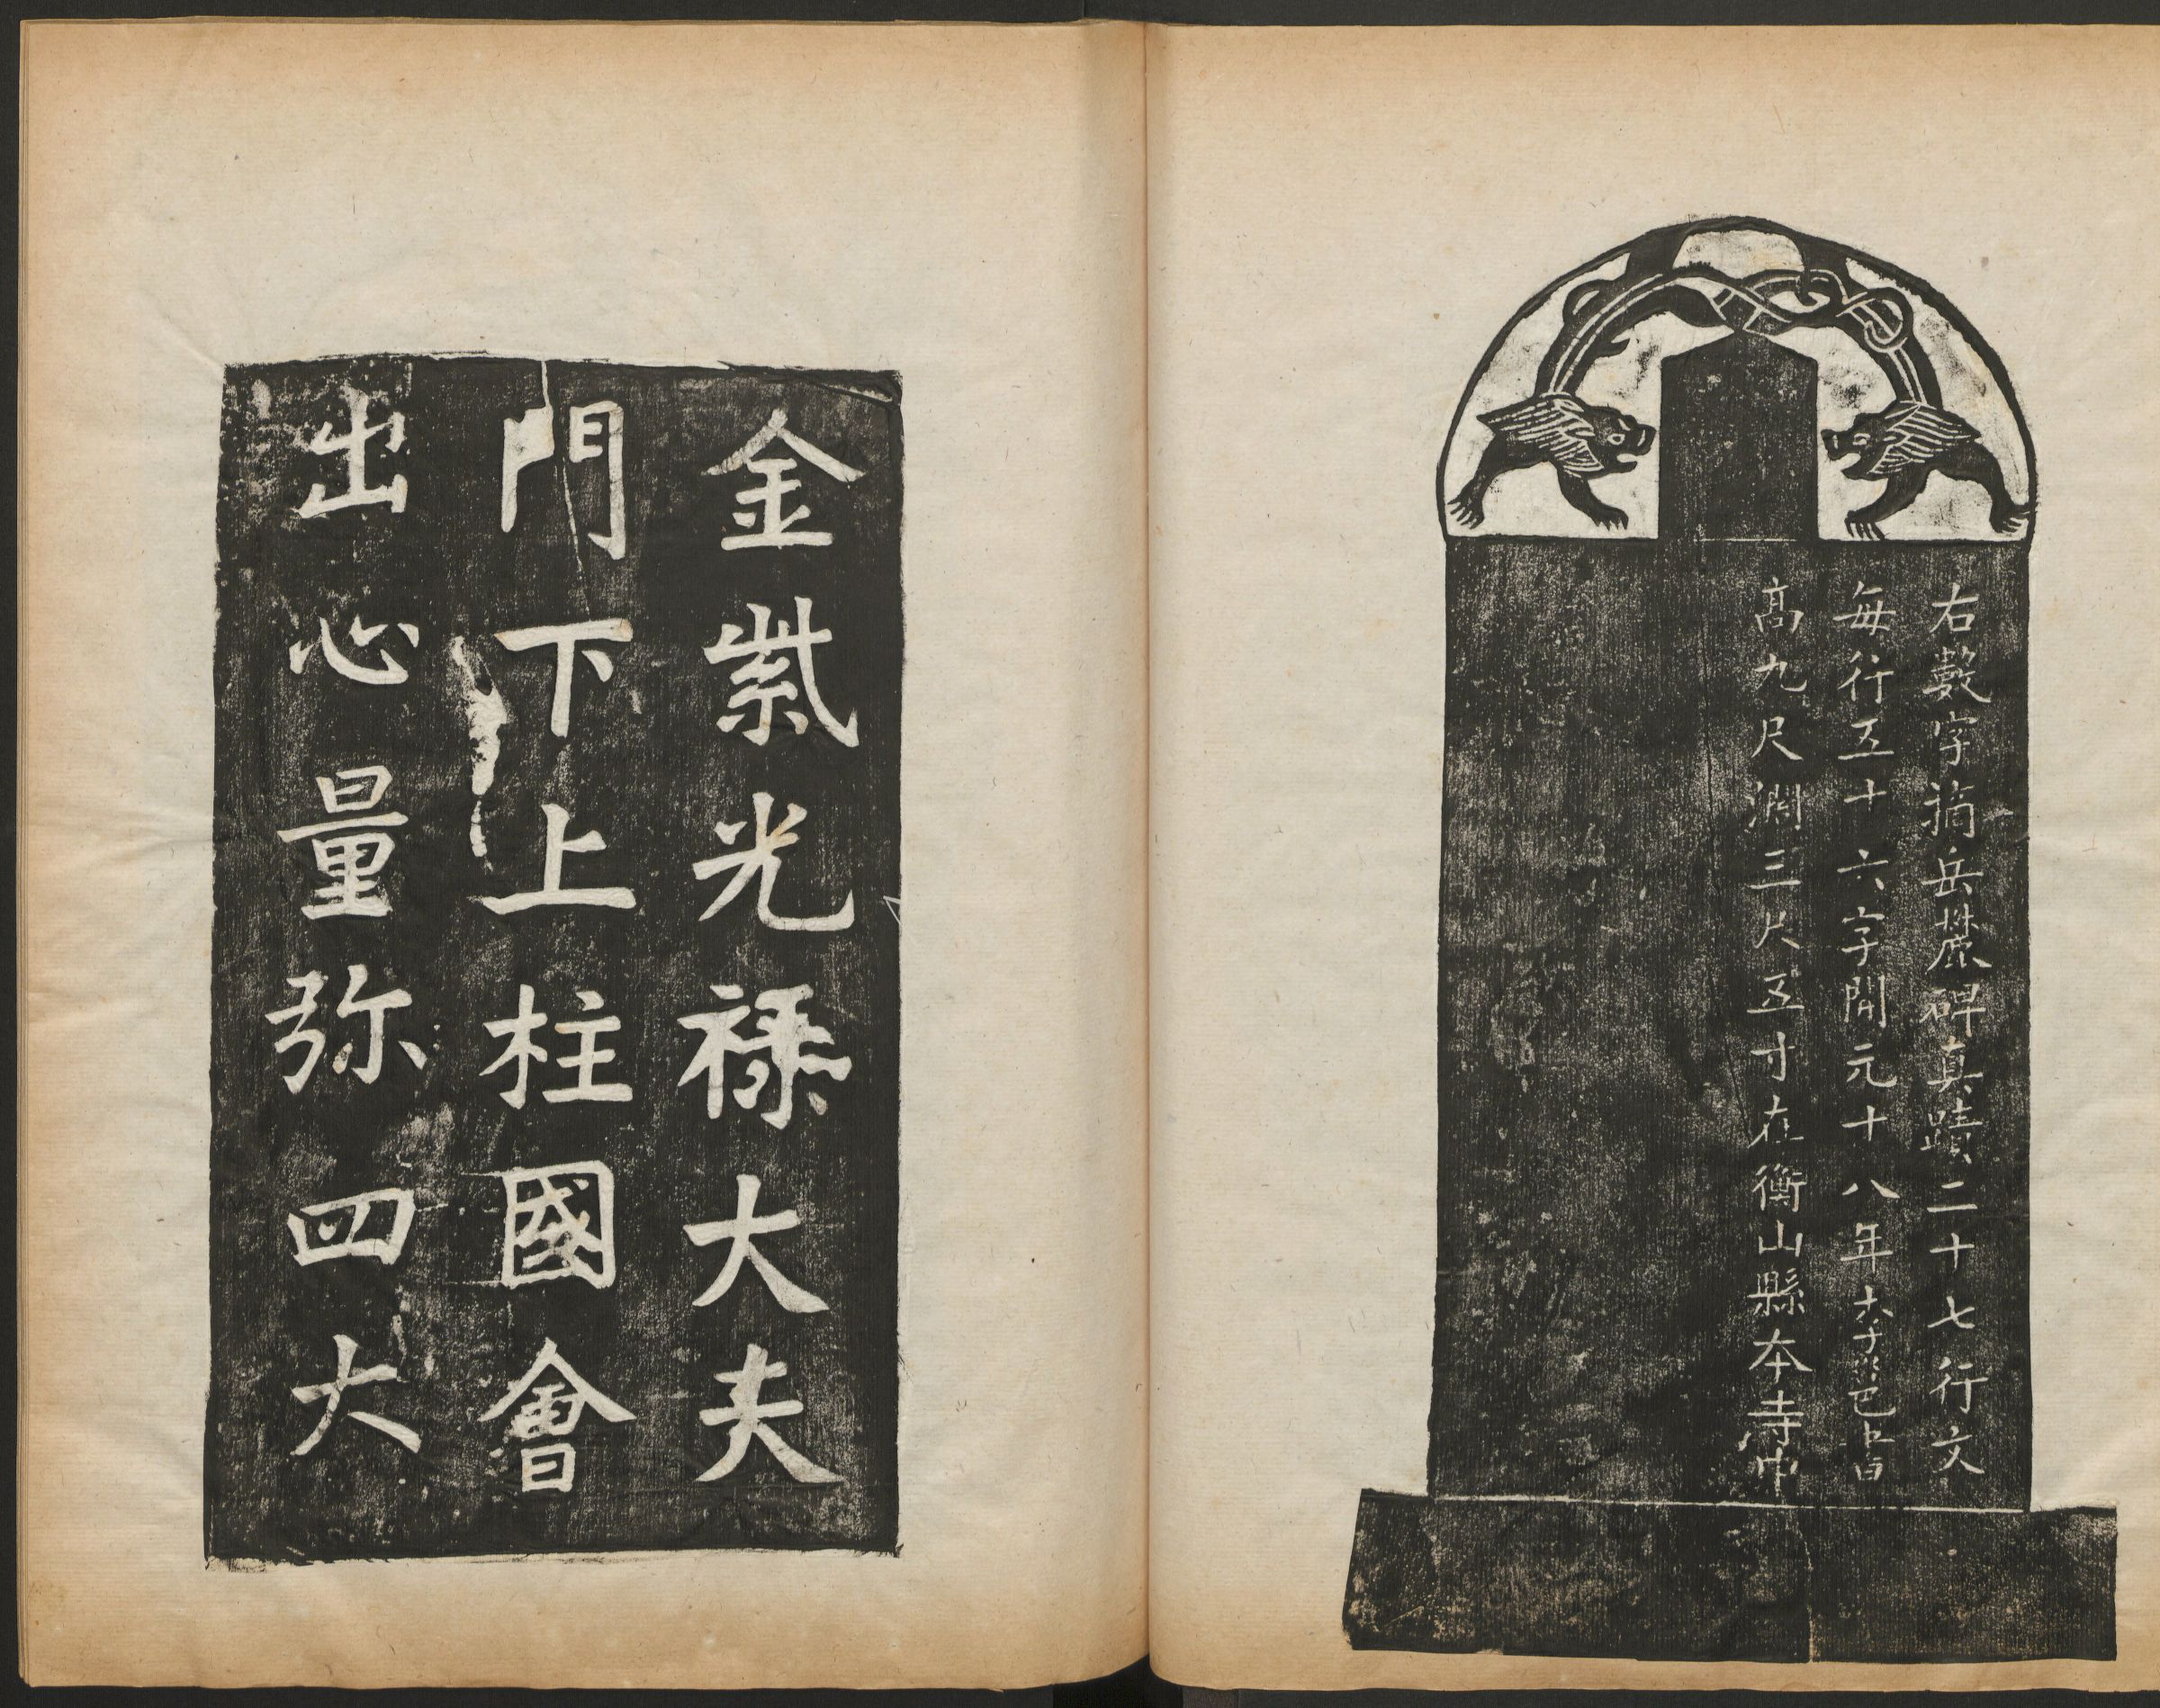 右數字摘岳麓碑真蹟二十七行文
每行五十六字開元十八年
高九尺濶三尺五寸在衡山縣本寺中
金紫光祿大夫
門下上柱國會
出心量弥四大